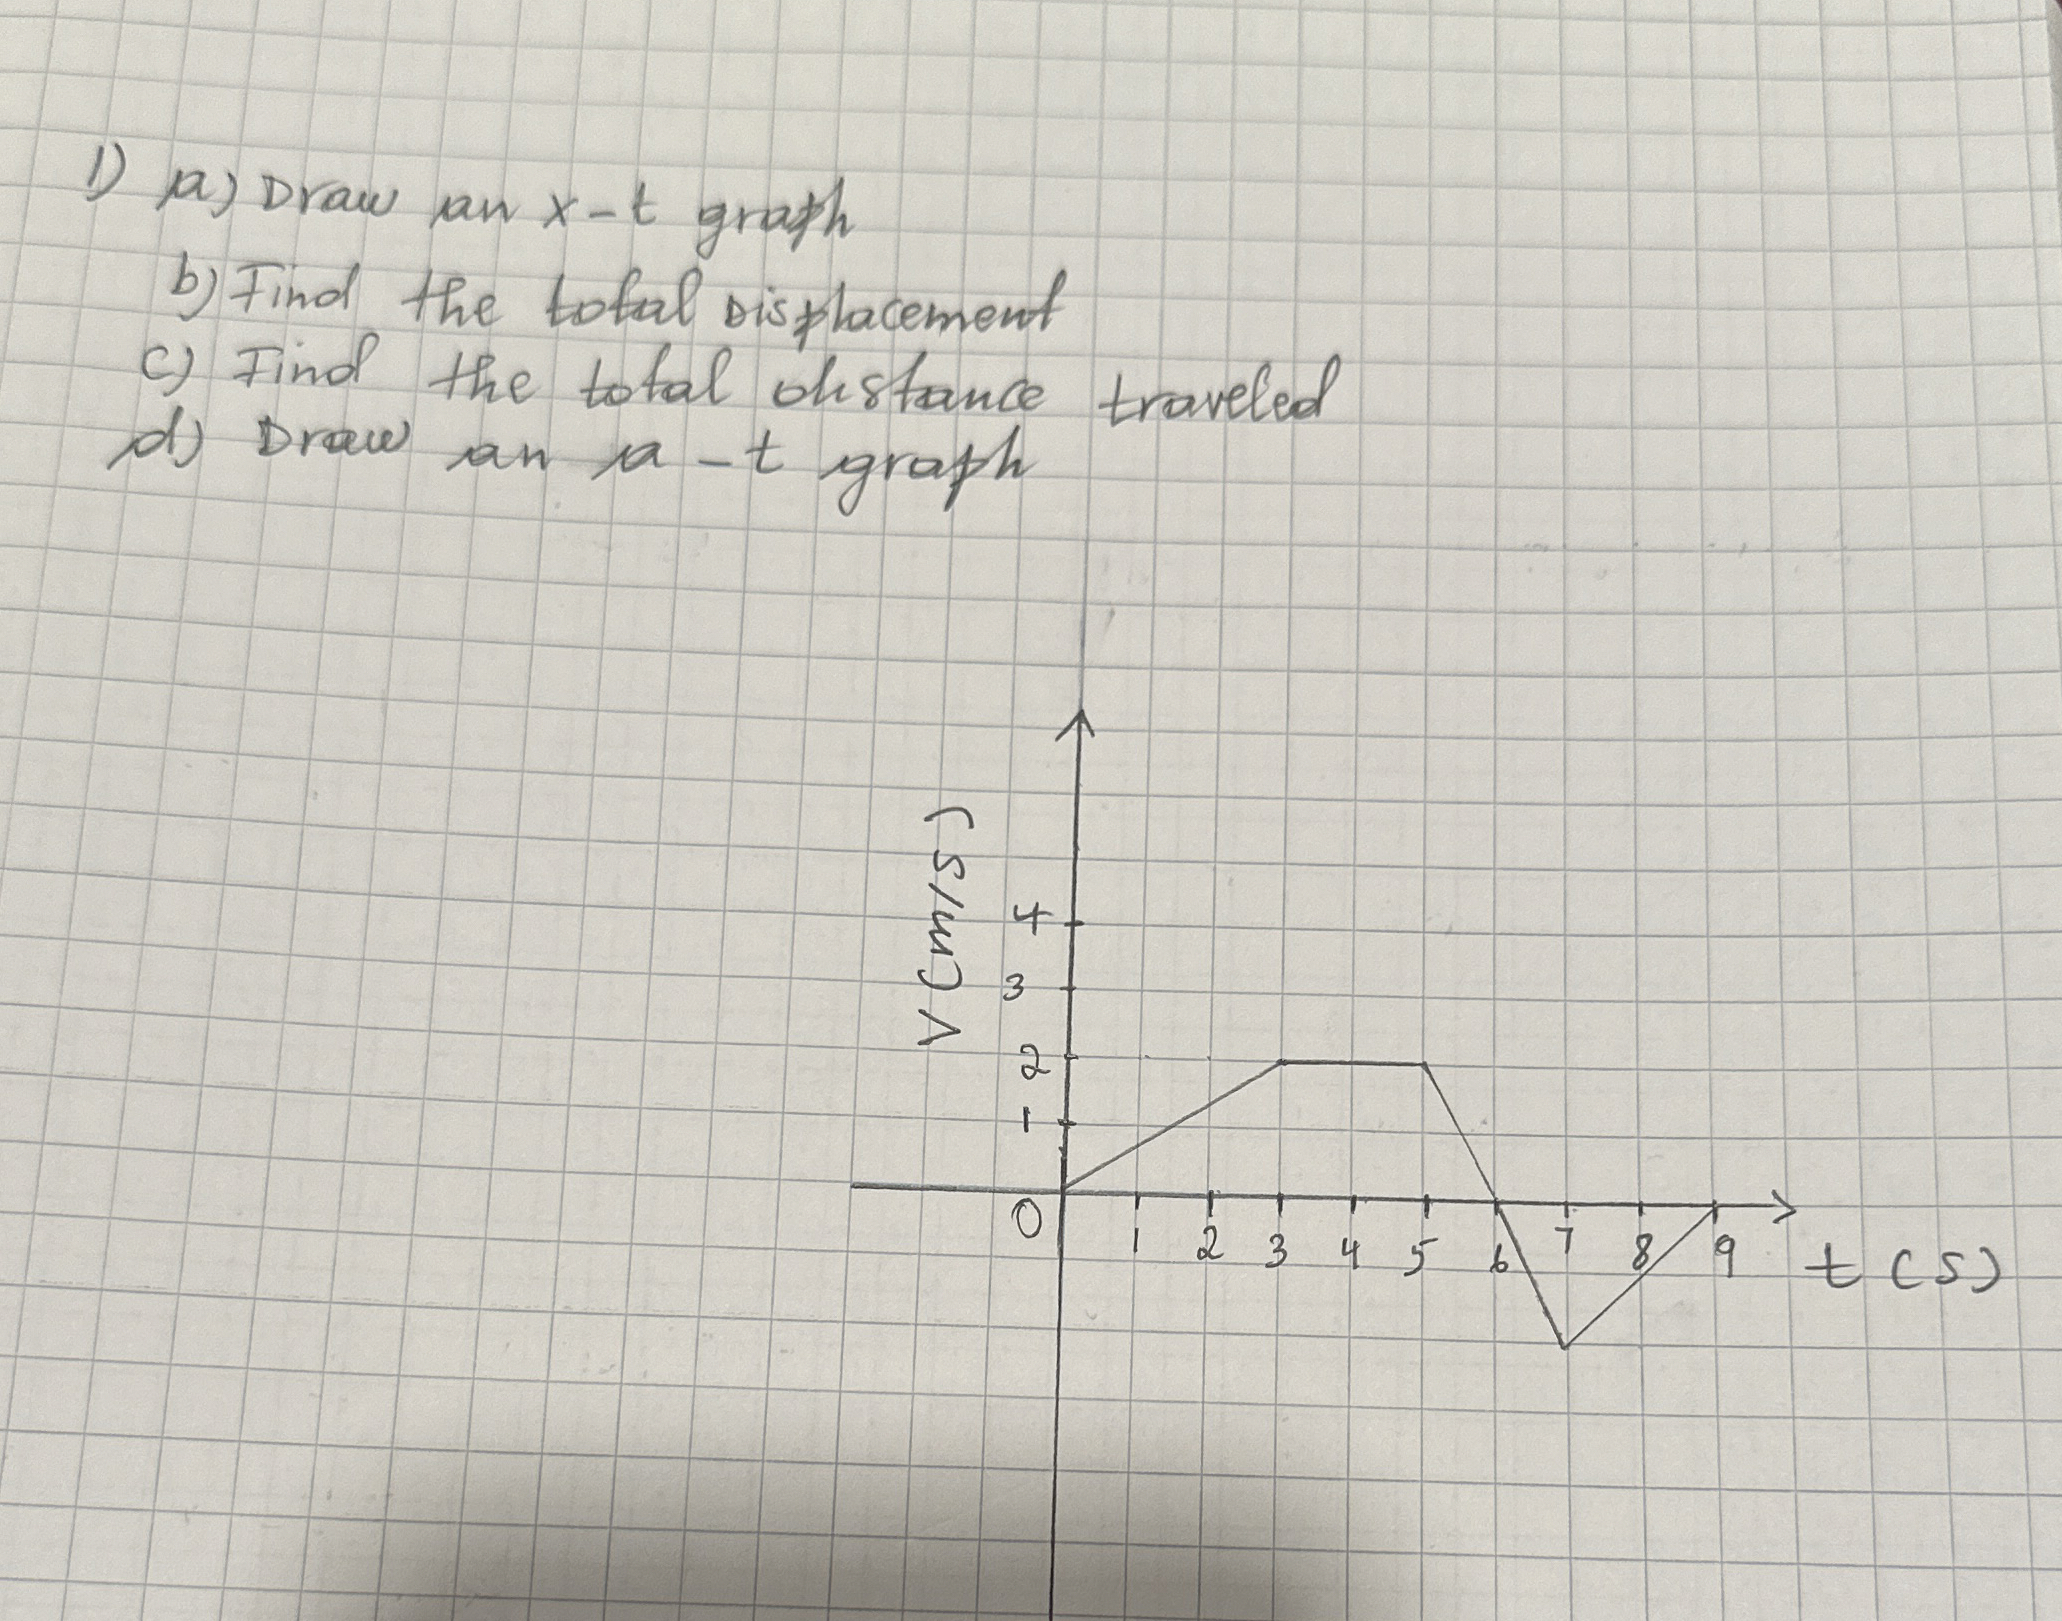 1) a) Draw an x-t graph
b) Find the total Displacement
c) Find the total distance traveled
d) Draw an a-t graph
V (m/s)
4
3
2
1
0
1 2 3 4 5 6 7 8 9 t (s)